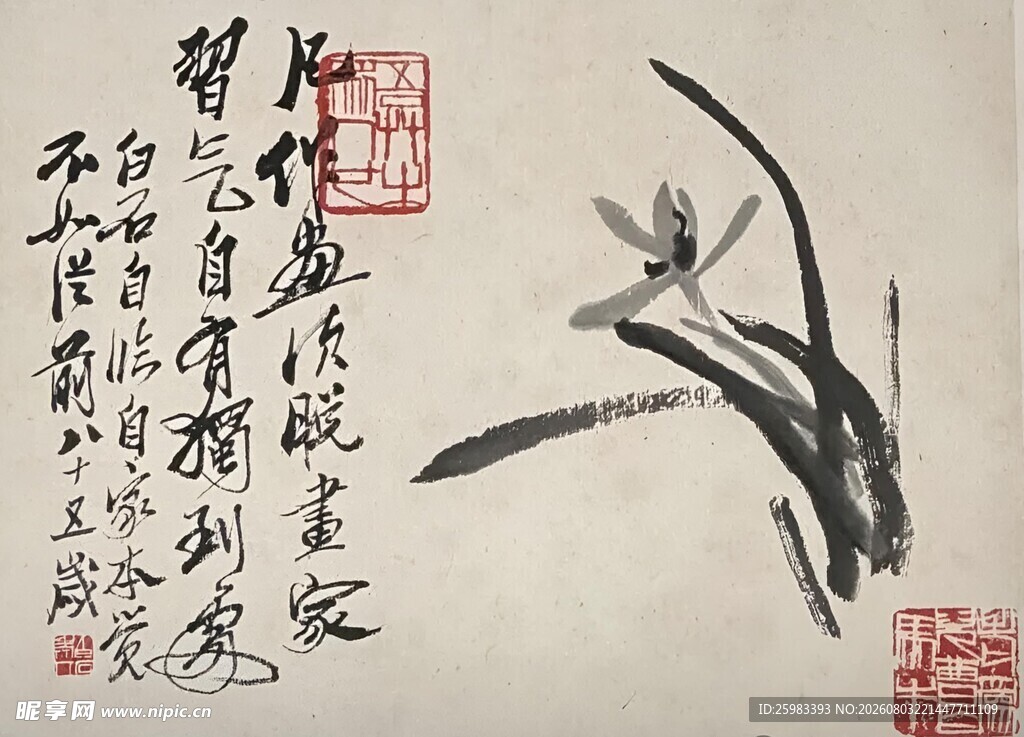 凡作畫須脫畫家
習气自有獨到處
白石自臨自家本覺
不如從前八十五歲
昵享网 www.nipic.cn
ID:25983393 NO:20260803221447711109